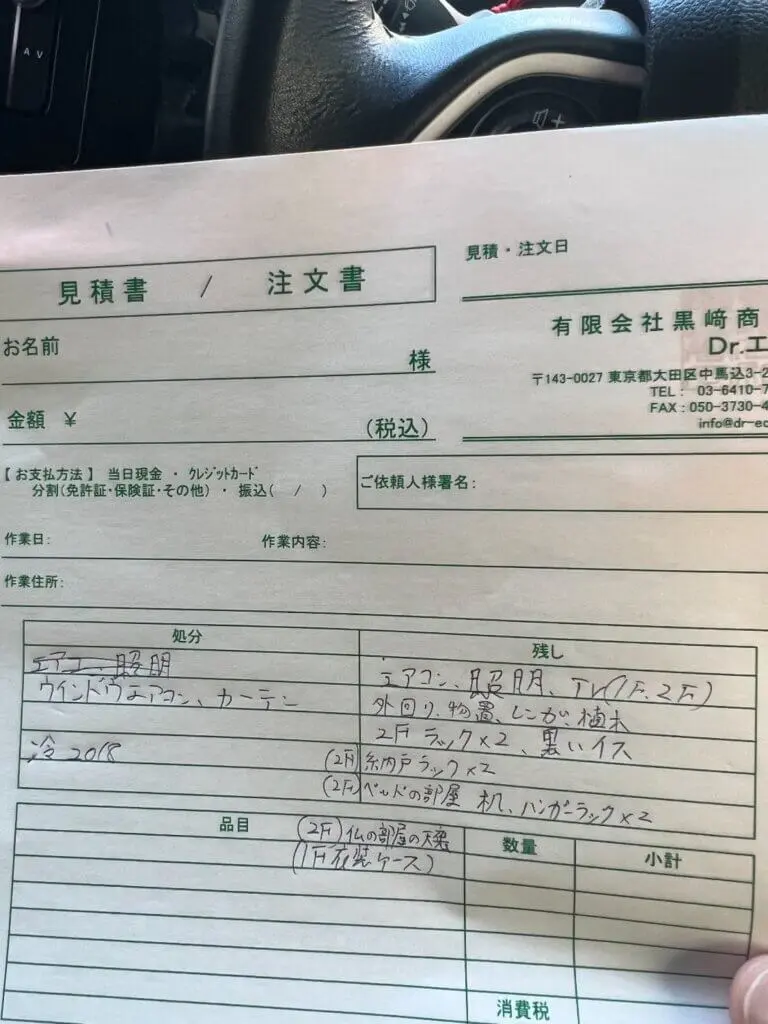 見積書 / 注文書
見積・注文日
有限会社黒﨑商
Dr.エ
お名前 様
〒143-0027 東京都大田区中馬込3-2
TEL: 03-6410-7
FAX:050-3730-4
info@dr-ec
金額 ¥ (税込)
【お支払方法】 当日現金 ・ クレジットカード
分割(免許証・保険証・その他) ・ 振込( / )
ご依頼人様署名:
作業日: 作業内容:
作業住所:
処分 残し
エアコン 照明 エアコン、照明、TV(1F、2F)
ウインドウエアコン、カーテン 外回り、物置、レンガ、植木
2F ラック×2、黒いイス
冷 2018 (2F) 納戸ラック×2
(2F) ベッドの部屋 机、ハンガーラック×2
品目 数量 小計
(2F) 仏の部屋の
(1F 衣装ケース)
消費税